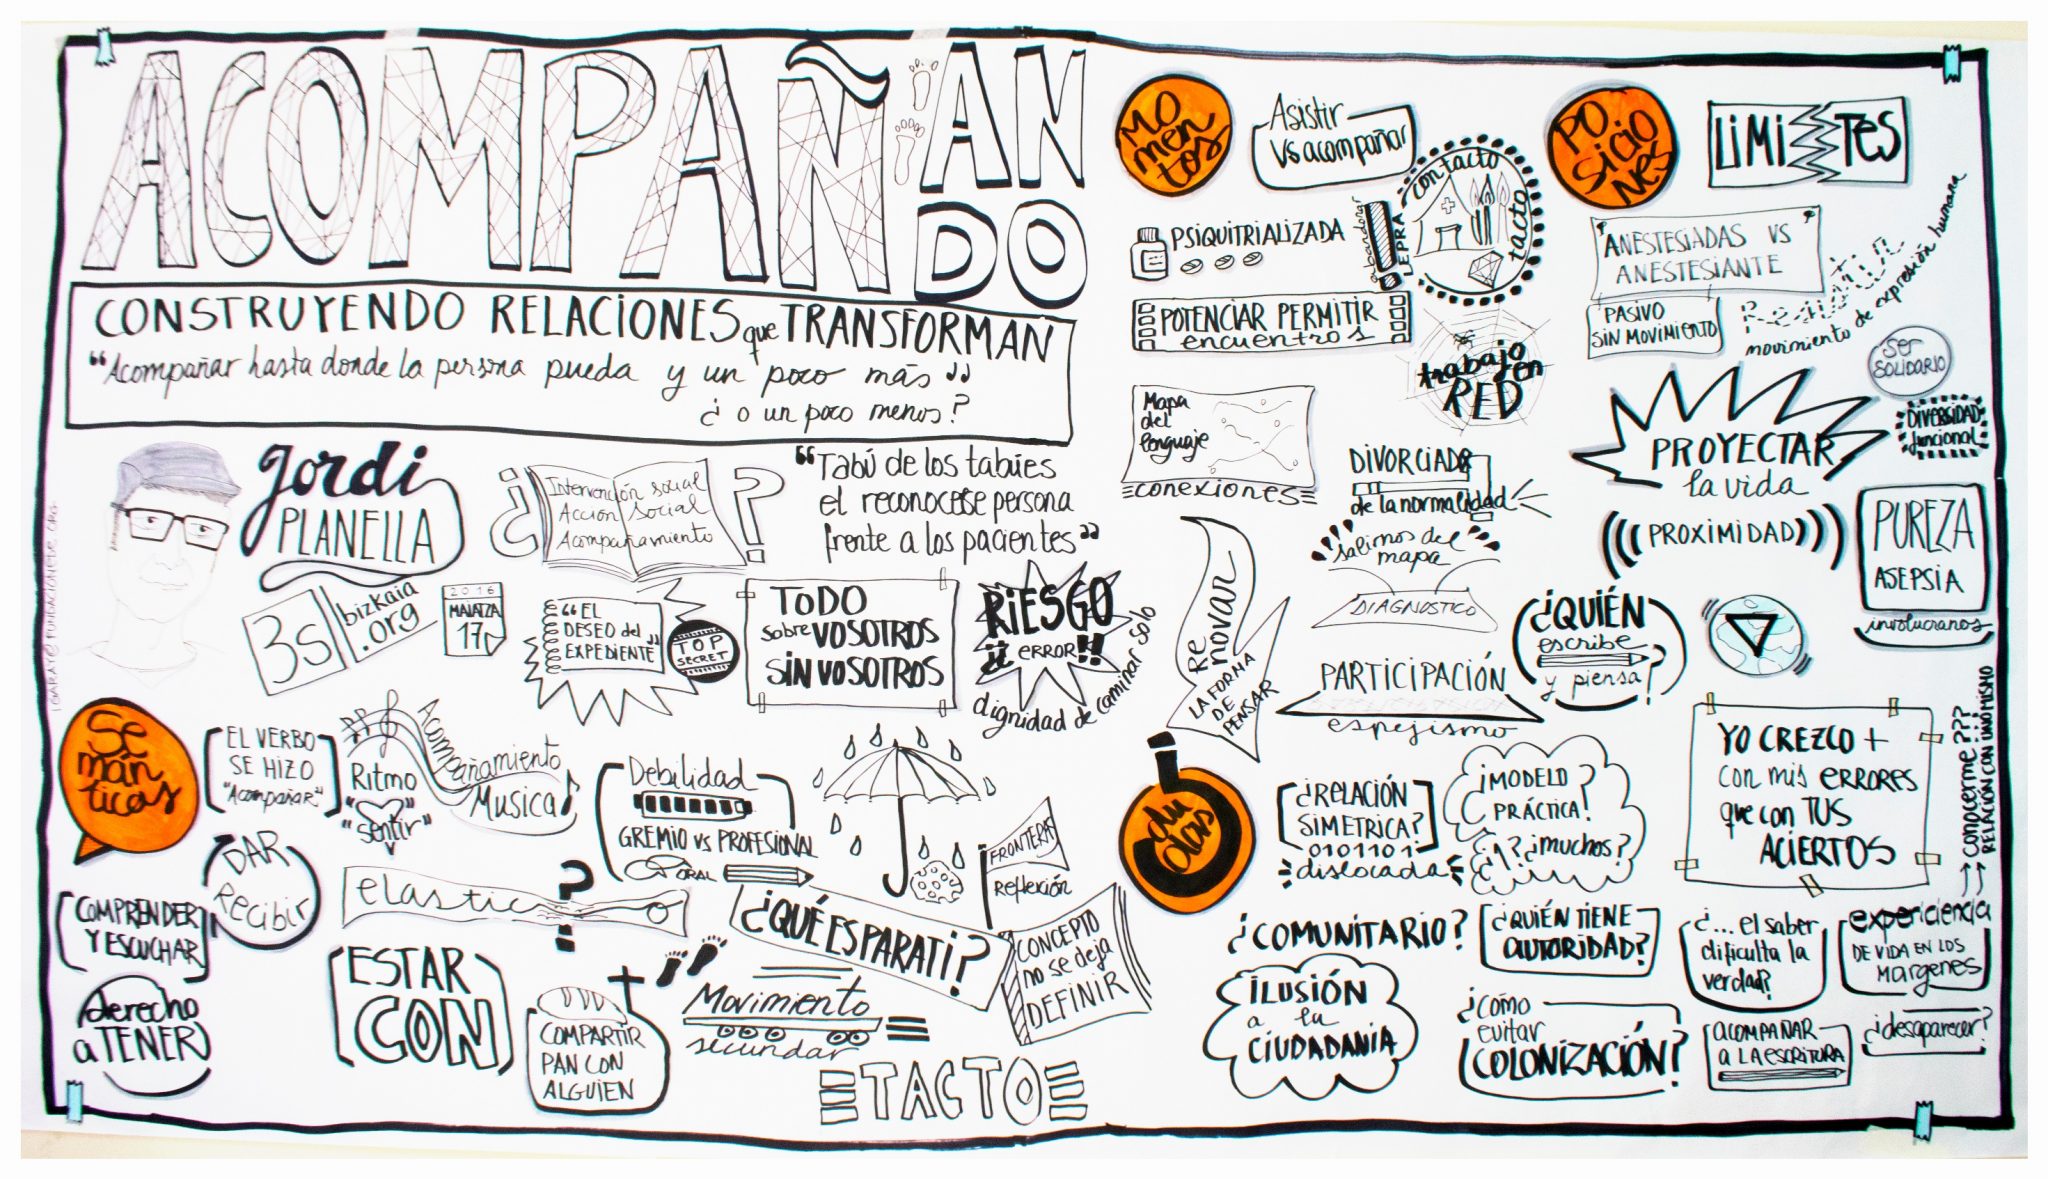 ACOMPAÑANDO
CONSTRUYENDO RELACIONES que TRANSFORMAN
"Acompañar hasta donde la persona pueda y un poco más"
¿o un poco menos?
Jordi
PLANELLA
¿Intervención social
Acción social
Acompañamiento?
"Tabú de los tabúes
el reconocese persona
frente a los pacientes"
3s
bizkaia
.org
2016
MAIATZA
17
"EL
DESEO del
EXPEDIENTE"
TOP
SECRET
TODO
sobre VOSOTROS
SIN VOSOTROS
RIESGO
ERROR!!
dignidad de caminar solo
Semánticas
EL VERBO
SE HIZO
"Acompañar"
Ritmo
"sentir"
Acompañamiento
Musica
Debilidad
GREMIO vs PROFESIONAL
ORAL
DAR
Recibir
COMPRENDER
Y ESCUCHAR
derecho
a TENER
elastico
?
ESTAR
CON
COMPARTIR
PAN CON
ALGUIEN
¿QUÉ ES PARA TI?
Movimiento
secundar
FRONTERAS
Reflexión
CONCEPTO
no se deja
DEFINIR
TACTO
Momentos
Asistir
vs acompañar
PSIQUITRIALIZADA
abandonar
LEPRA
contacto
tacto
POTENCIAR PERMITIR
encuentros
trabajo en
RED
Mapa
del
lenguaje
conexiones
DIVORCIADA
de la normalidad
salirnos del
mapa
DIAGNOSTICO
RENOVAR
LA FORMA
DE
PENSAR
PARTICIPACIÓN
espejismo
¿QUIÉN
escribe
y piensa?
POSICIONES
LIMITES
ANESTESIADAS VS
ANESTESIANTE
PASIVO
SIN MOVIMIENTO
movimiento de expresión humana
SER
SOLIDARIO
PROYECTAR
la vida
DIVERSIDAD
funcional
PROXIMIDAD
PUREZA
ASEPSIA
involucranos
YO CREZCO +
con mis ERRORES
que con TUS
ACIERTOS
conocerme???
RELACIÓN CON UNO MISMO
dudas
¿RELACIÓN
SIMETRICA?
0101101
dislocada
¿MODELO?
PRÁCTICA!
¿1? ¿muchos?
¿COMUNITARIO?
¿QUIÉN TIENE
AUTORIDAD?
¿... el saber
dificulta la
verdad?
expericiencia
DE VIDA EN LOS
MARGENES
ILUSIÓN
a la
CIUDADANIA
¿CÓMO
evitar
COLONIZACIÓN?
ACOMPAÑAR
A LA ESCRITURA
¿desaparecer?